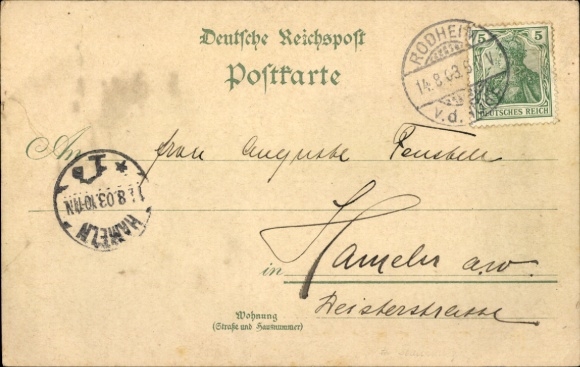 Deutsche Reichspost
Postkarte
RODHEIM
14.8.03.
v.d.
5 5
DEUTSCHES REICH
An Frau Auguste
HAMELN
8.03.10-11N
in Hameln a.w.
Deisterstrasse
Wohnung
(Straße und Hausnummer)